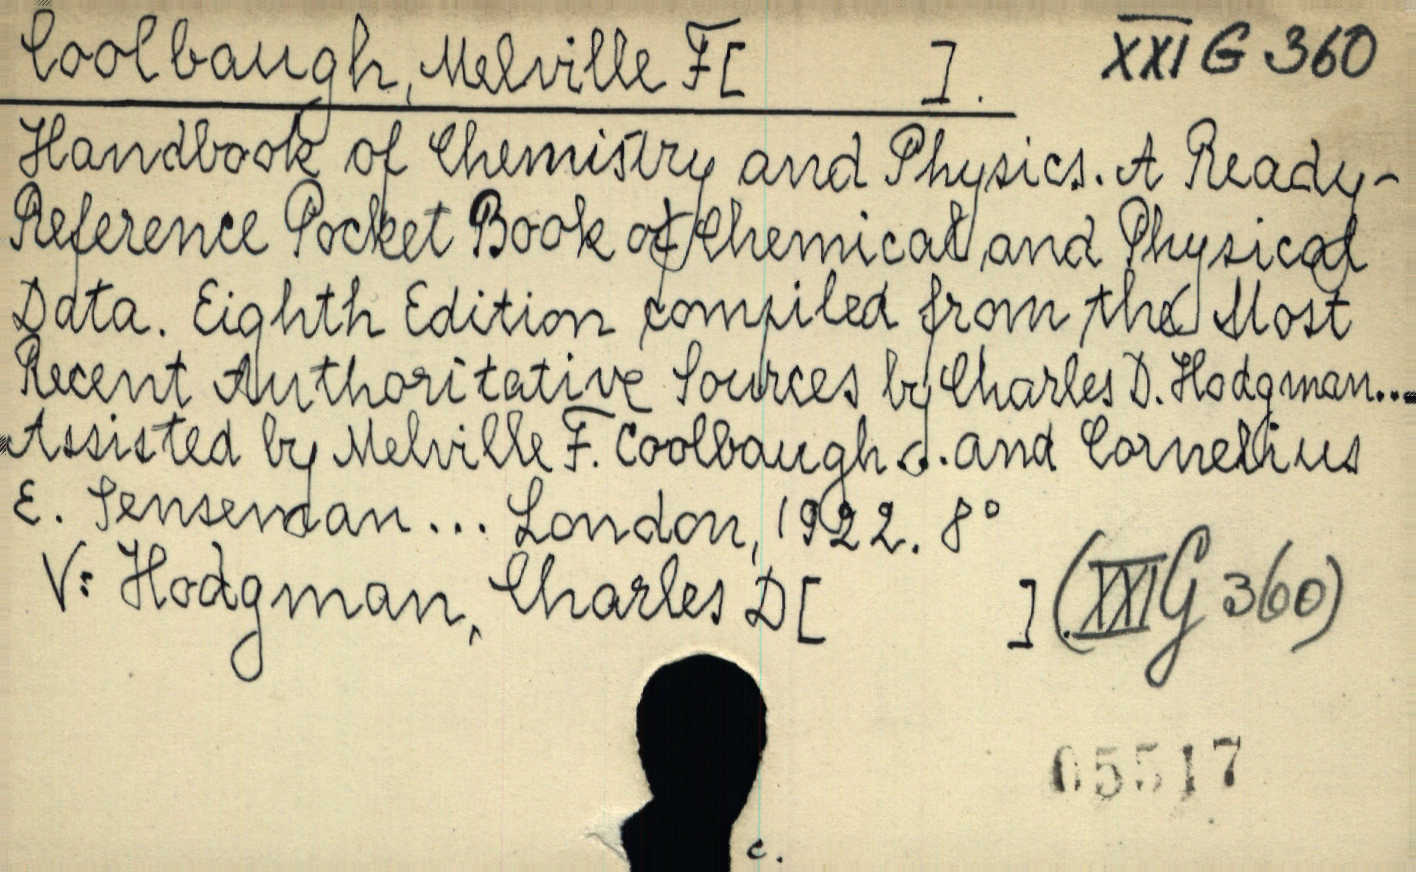 Coolbaugh, Melville F[ ]. XXI G 360
Handbook of Chemistry and Physics. A Ready-
Reference Pocket Book of Chemical and Physical
Data. Eighth Edition compiled from the Most
Recent Authoritative Sources by Charles D. Hodgman...
Assisted by Melville F. Coolbaugh ... and Cornelius
E. Senseman... London, 1922. 8°
V: Hodgman, Charles D[ ]. (XXI G 360)
05517
c.